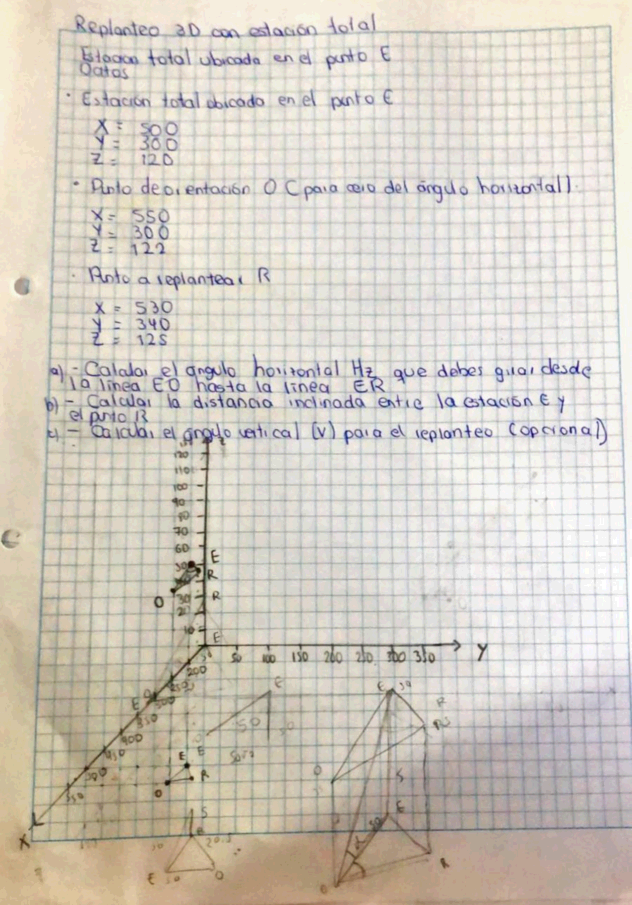 Replanteo 3D con estación total
Estacion total ubicada en el punto E
Datos
· Estación total ubicada en el punto E
X = 500
Y = 300
Z = 120
· Punto de orientación O (para cero del ángulo horizontal).
X = 550
Y = 300
Z = 122
· Punto a replantear R
X = 530
Y = 340
Z = 125
a) - Calcular el angulo horizontal Hz que debes girar desde
la linea EO hasta la linea ER
b) - Calcular la distancia inclinada entre la estación E y
el punto R
c) - Calcular el ángulo vertical (V) para el replanteo (opcional)
120
110
100
90
80
70
60
50 E
R
O 30 R
20
10
E
50 50 100 150 200 250 300 350 Y
200
250
E O 300
350
400
450
500
550
X
E
50
E 50
R
O
S
E
50
α
O R
E
O R
S
R
50 20.5
E 50 O